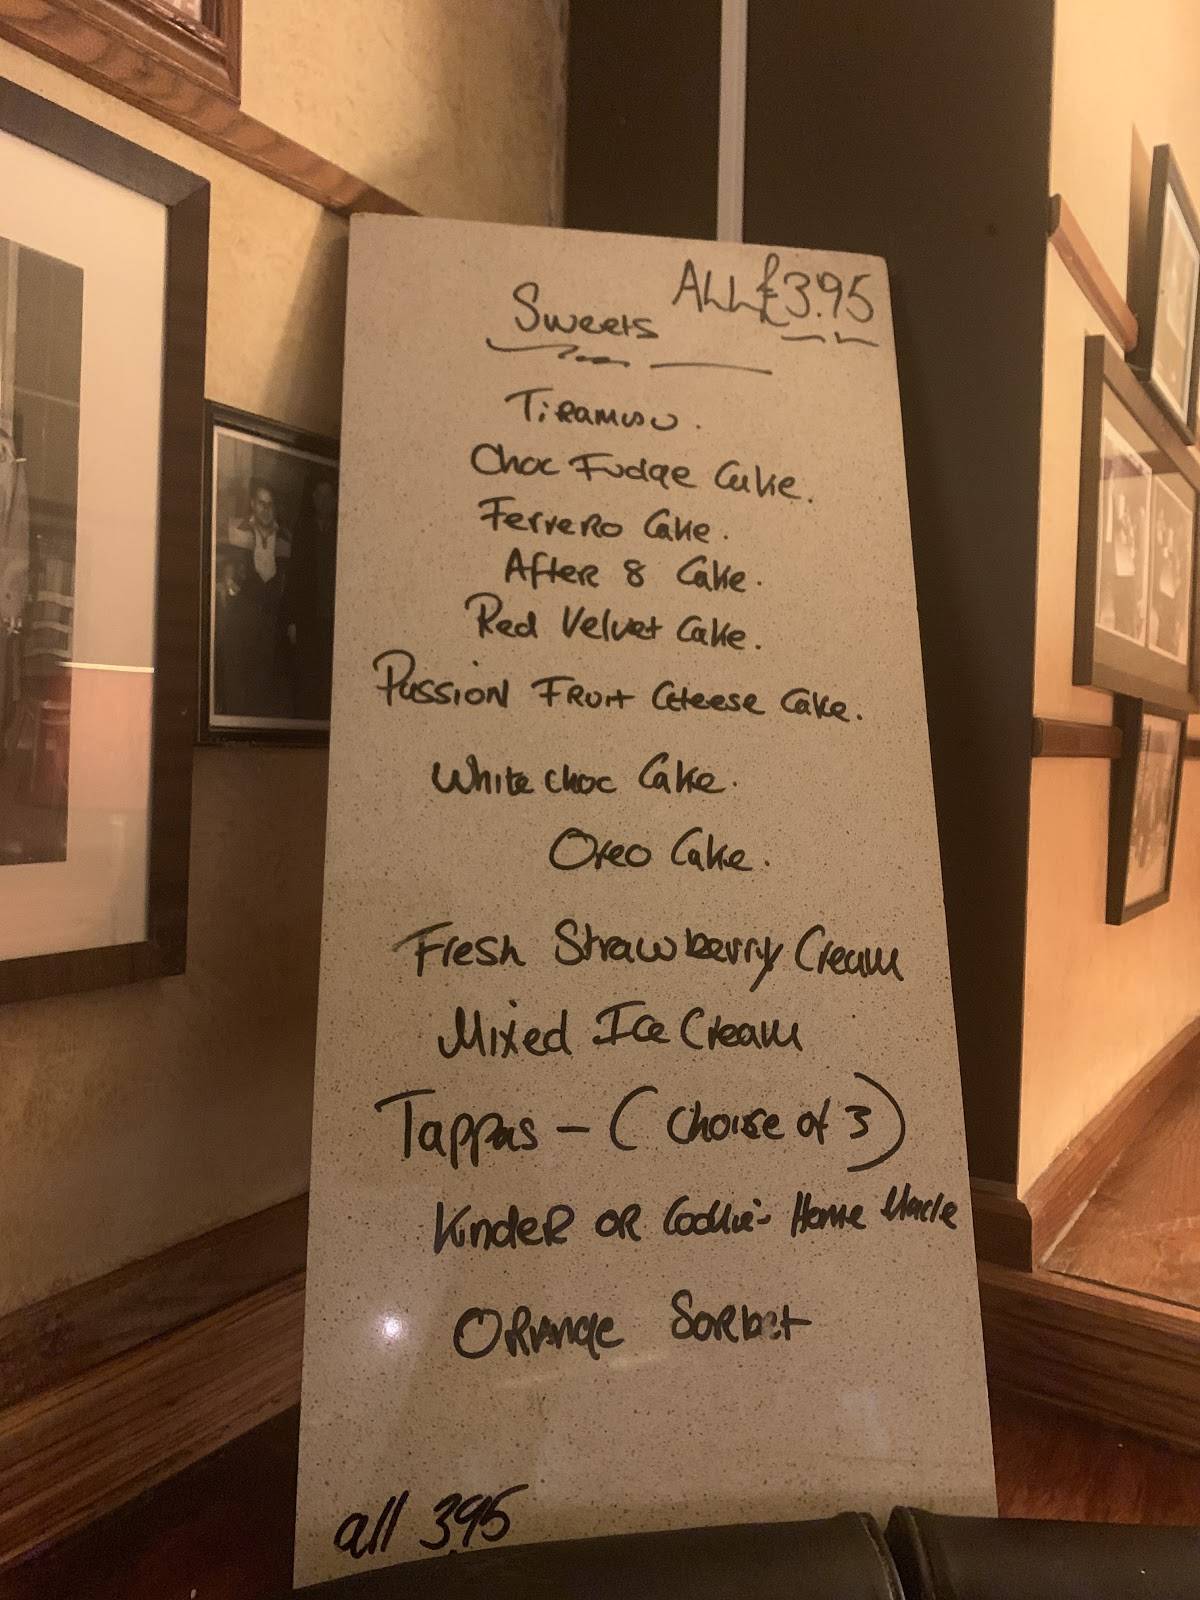 Sweets ALL £3.95
Tiramusu.
Choc Fudge Cake.
Ferrero Cake.
After 8 Cake.
Red Velvet Cake.
Passion Fruit Cheese Cake.
White choc Cake.
Oreo Cake.
Fresh Strawberry Cream
Mixed Ice Cream
Tappas - (Choise of 3)
Kinder OR Cookie - Home Made
Orange Sorbet
all 3.95